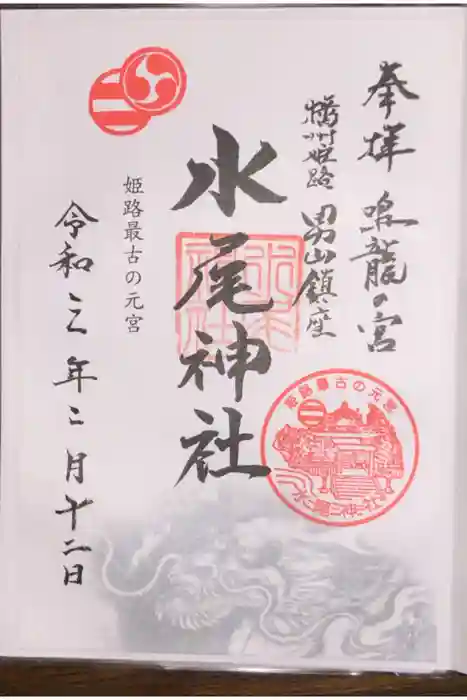 奉拝 鳴龍の宮
播州姫路 男山鎮座
水尾神社
水尾神社
姫路最古の元宮
令和三年二月十二日
姫路最古の元宮
水尾神社